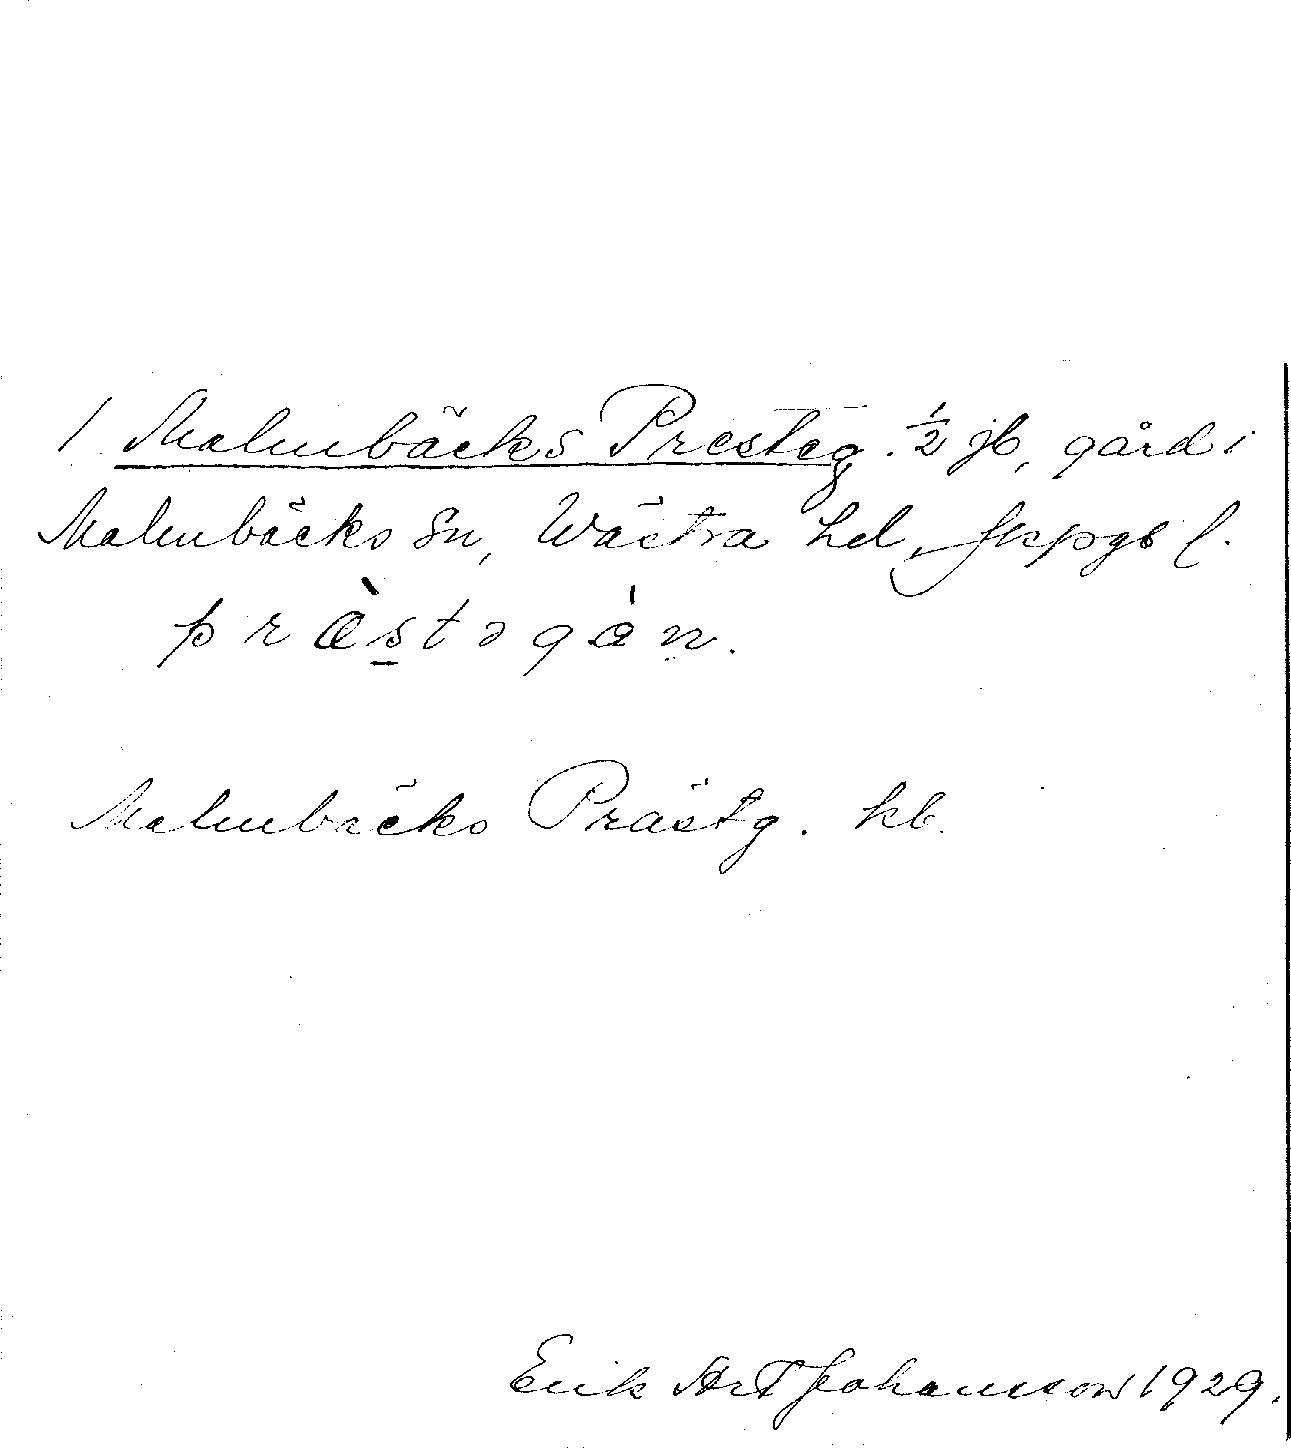 1 Malmbäcks Presteg. ½ jb, gård i
Malmbäcks sn, Wästra hd, Jkpgs l.
præ̀s̲təgȧn.
Malmbäcks Prästg. kb.
Erik Art Johansson 1929.